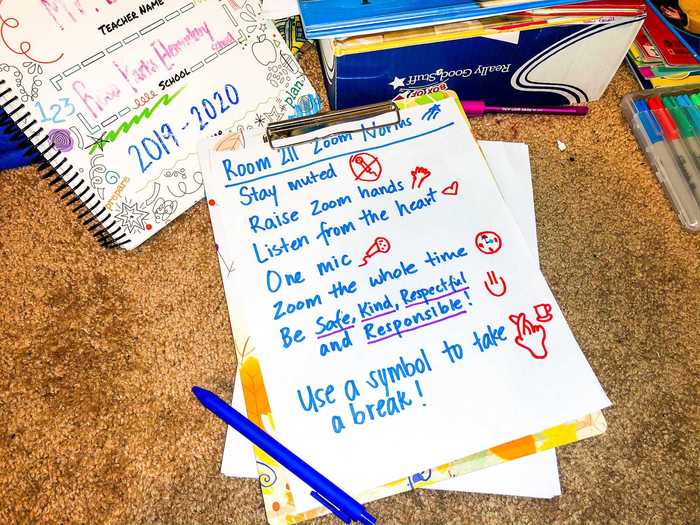 TEACHER NAME
Rosa Parks Elementary
School
SCHOOL
2019-2020
123
prepare
plan
Really Good Stuff
BOXTOPS
Room 211 Zoom Norms
Stay muted
Raise Zoom hands
Listen from the heart
One mic
Zoom the whole time
Be Safe, Kind, Respectful
and Responsible!
Use a symbol to take
a break!